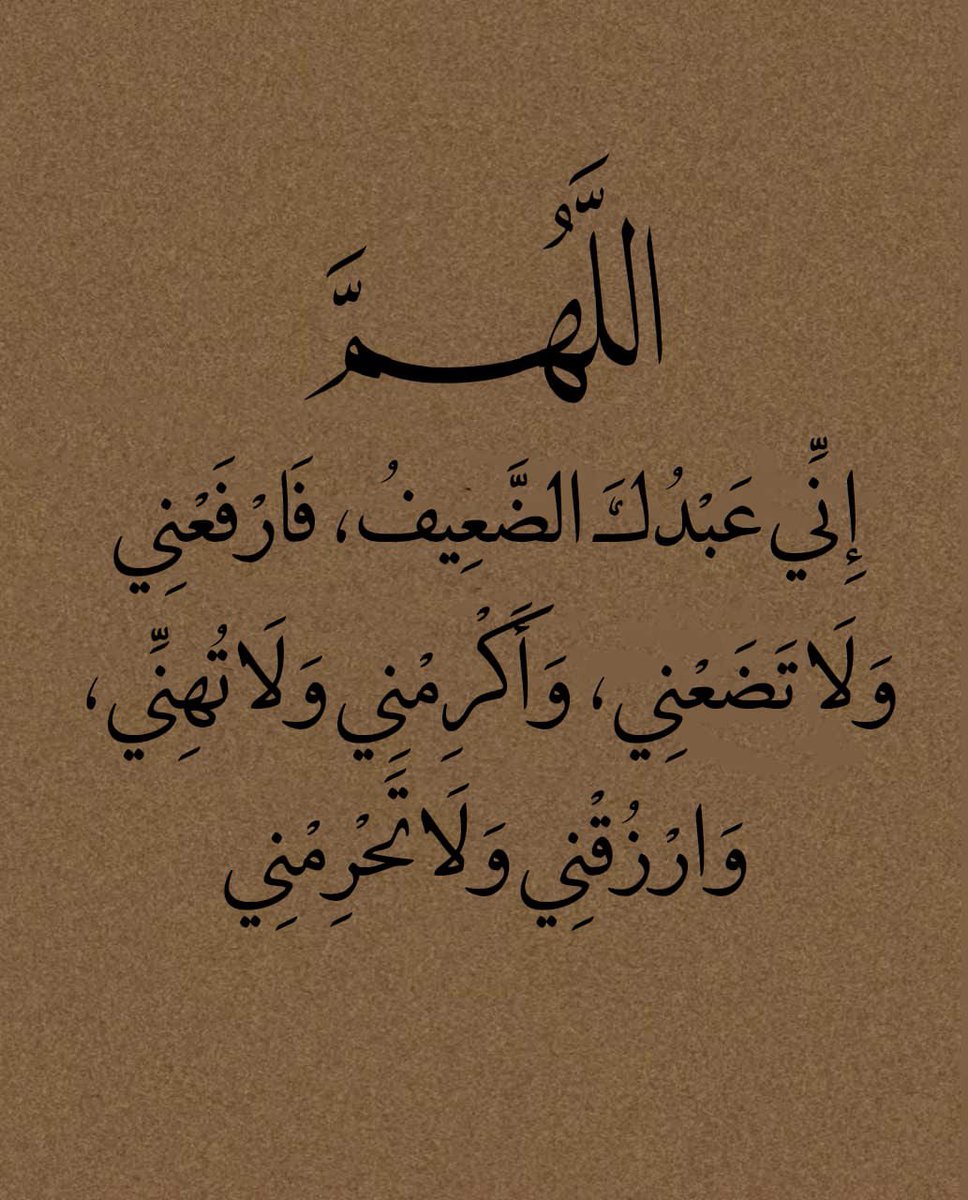 اللَّهُمَّ
إِنِّي عَبْدُكَ الضَّعِيفُ، فَارْفَعْنِي
وَلَا تَضَعْنِي، وَأَكْرِمْنِي وَلَا تُهِنِّي،
وَارْزُقْنِي وَلَا تَحْرِمْنِي